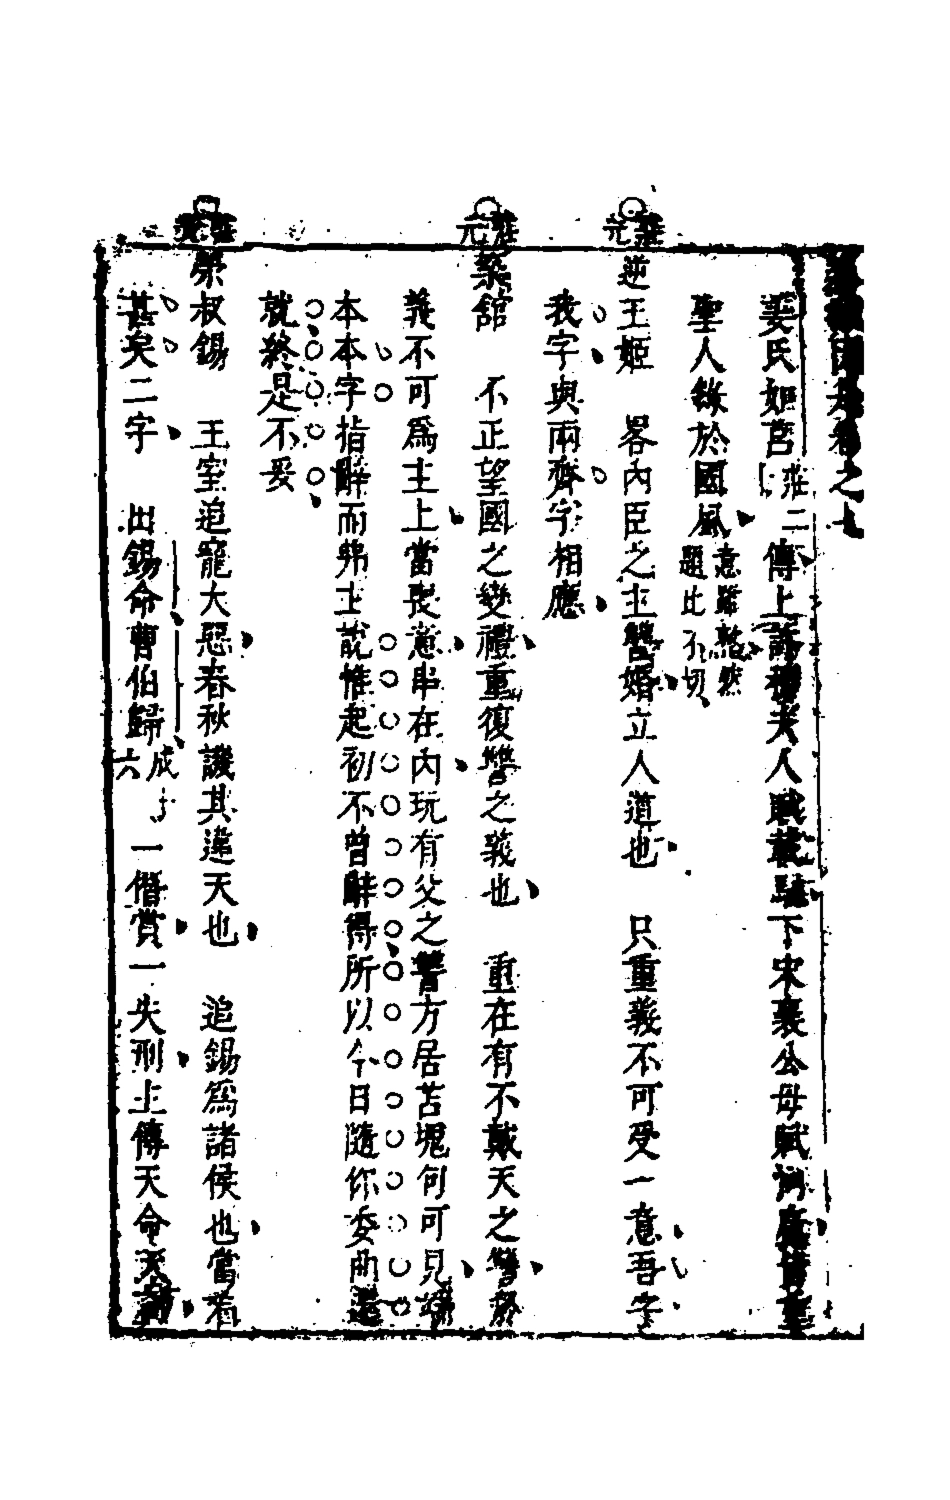 姜氏如莒莊二傳上許穆夫人賦載馳下宋襄公母賦河廣皆
聖人錄於國風意雖點然題比不切
莊元逆王姬 畧內臣之主讐婚立人道也 只重義不可受一意吾字
我字與兩齊字相應
莊元築館 不正望國之變禮重復讐之義也 重在有不戴天之讐於
義不可為主上當喪意串在內玩有父之讐方居苫塊何可見端
本本字指辭而弗主說惟起初不曾辭得所以今日隨你委曲還
就終是不妥
榮叔錫 王室追寵大惡春秋譏其違天也 追錫為諸侯也當看
甚矣二字 出錫命曹伯歸成十六一僭賞一失刑主傳天命天討